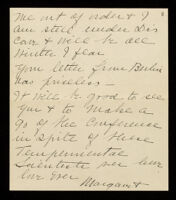 me out of order & I
am still under Dis
cow & will be all
Winter I fear.
Your letter from Berlin
was priceless —
It will be good to see
you & to make a
go of the Conference
in spite of these
Temperamental
Scientists see
love Ever
Margaret